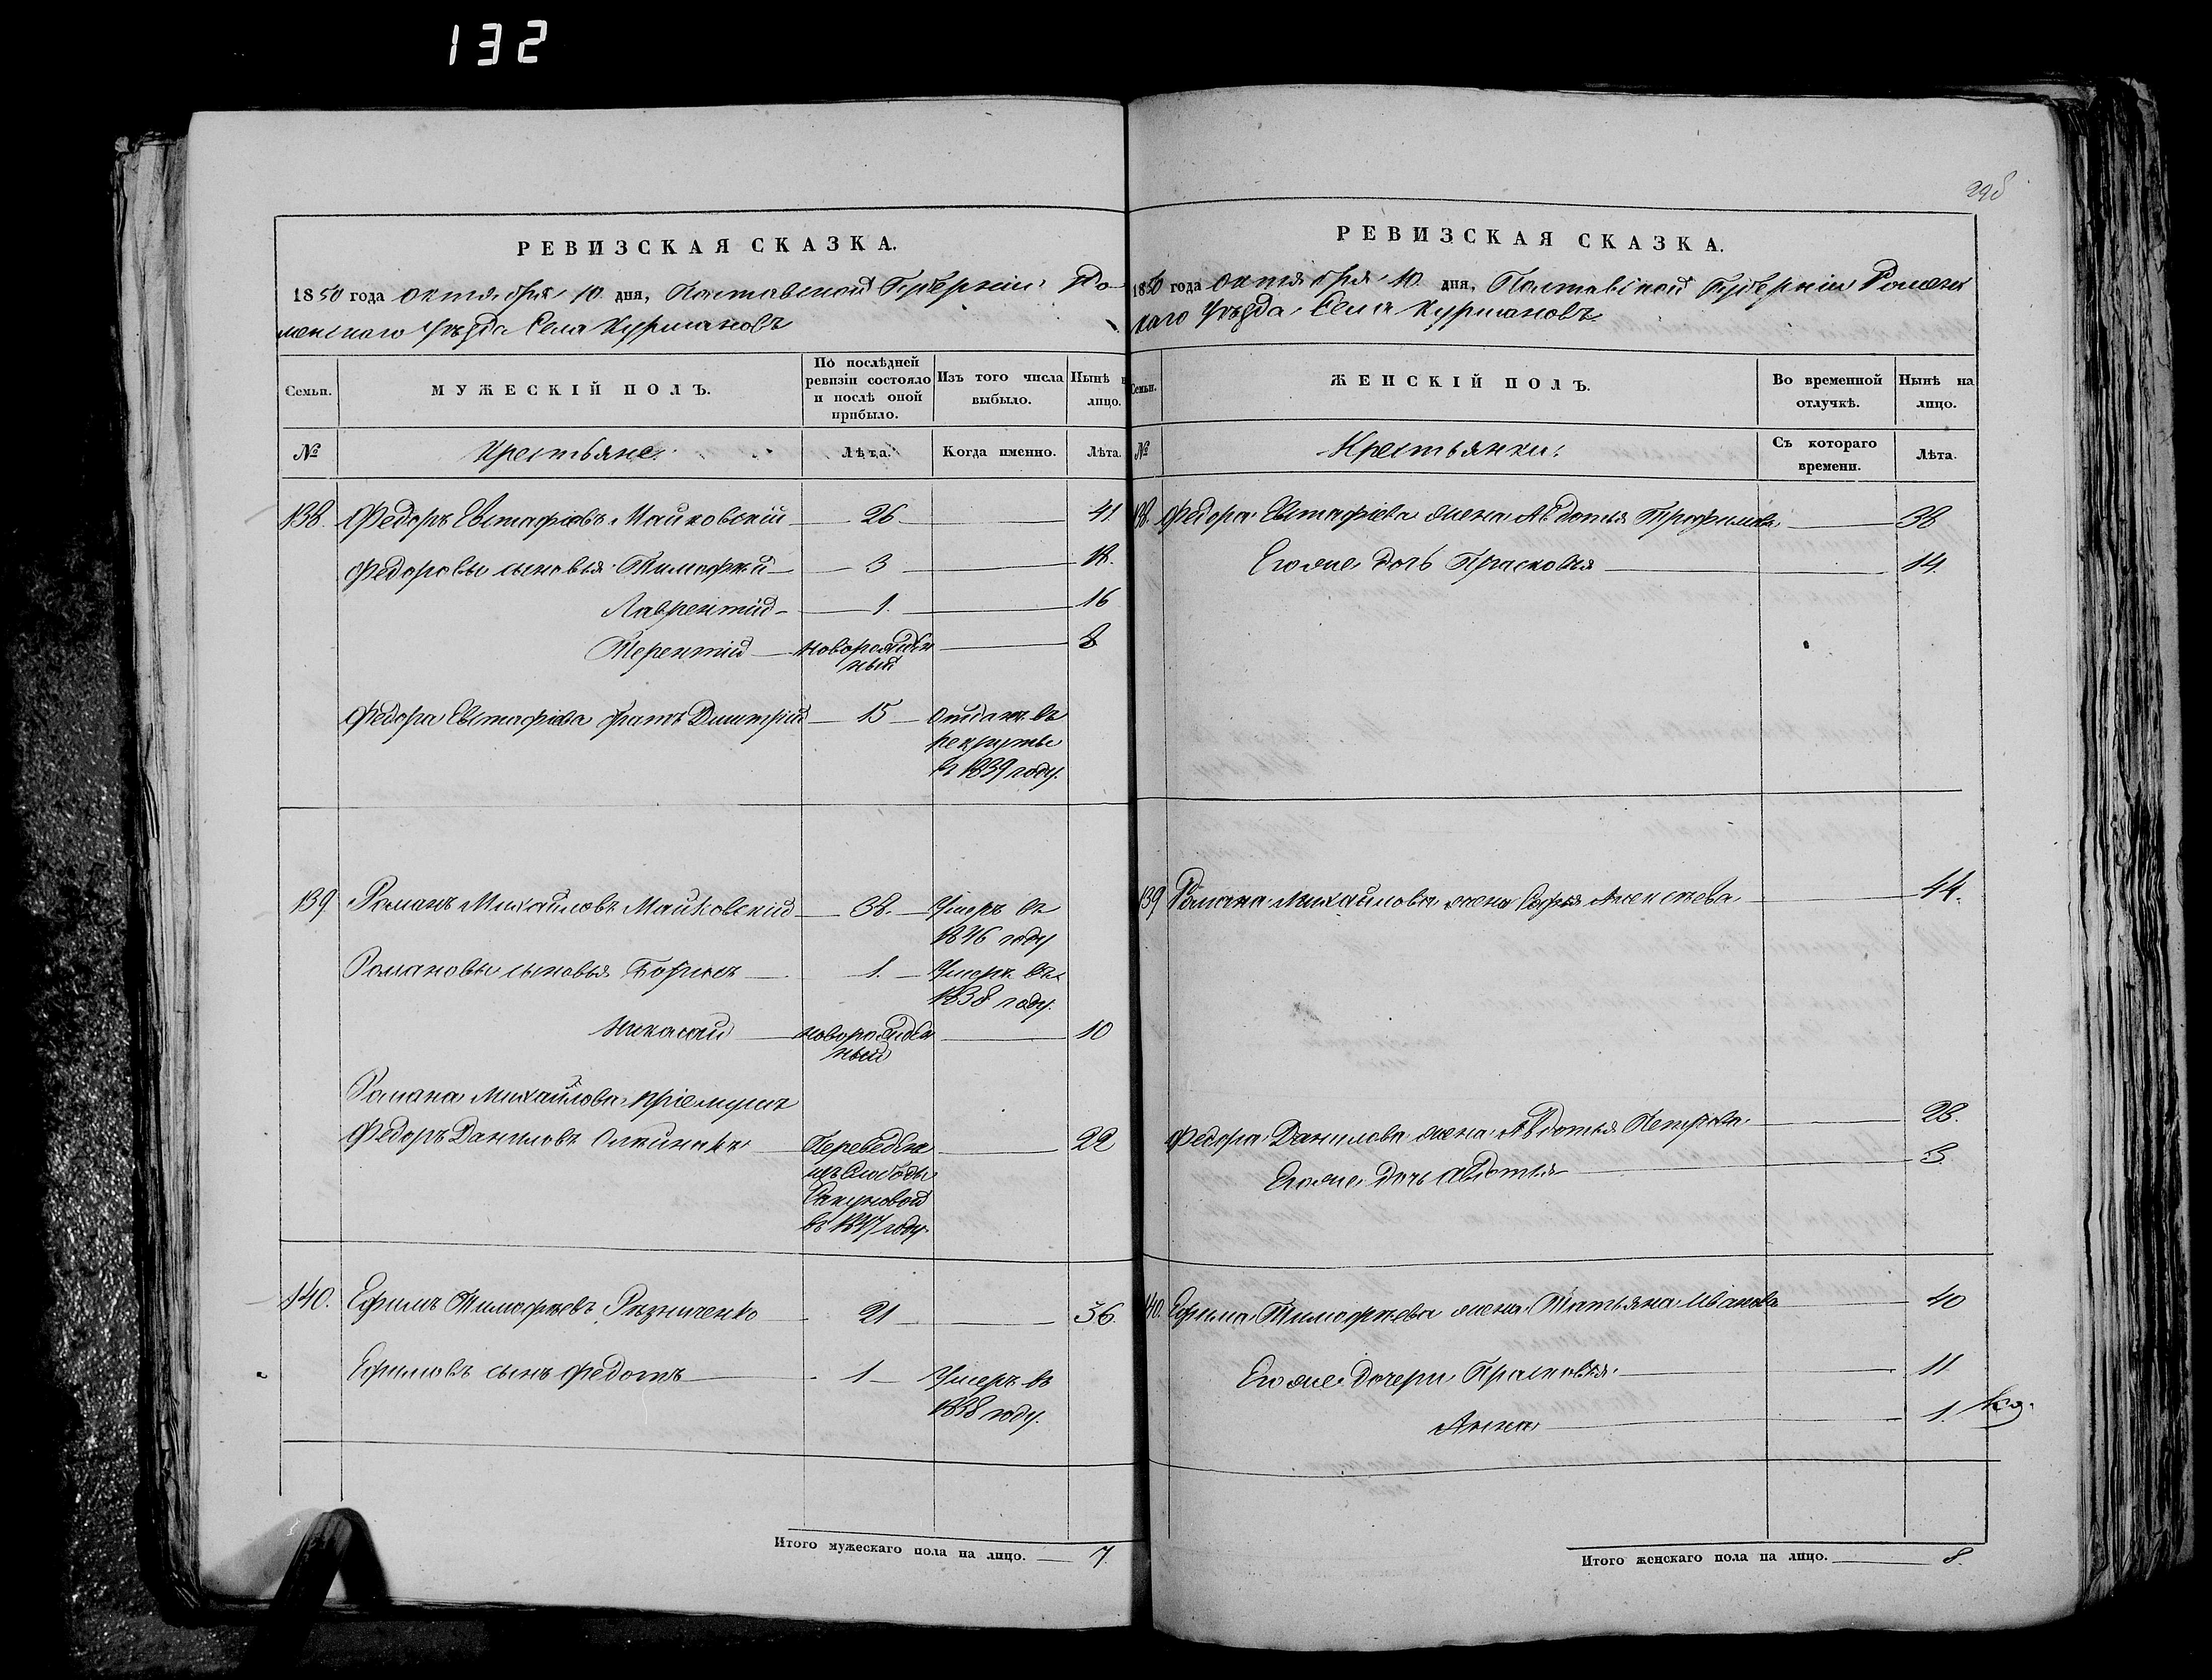 132
РЕВИЗСКАЯ СКАЗКА.
1850 года октября 10 дня, Полтавской Губерніи Ро-
менскаго Уѣзда Села Курмановъ
Семьи.
МУЖЕСКІЙ ПОЛЪ.
По послѣдней
ревизіи состояло
и послѣ оной
прибыло.
Изъ того числа
выбыло.
Нынѣ н
лицо.
№
Крестьяне.
Лѣта.
Когда именно.
Лѣта.
138. Федоръ Евстафіевъ Майковскій 26 41
Федоровы сыновья Тимофей 3 18.
Лаврентій 1. 16
Терентій новорожден 8
ный
Федора Евстафіева братъ Дмитрій 15 Отданъ въ
рекруты
въ 1839 году.
139 Романъ Михайловъ Майковскій 38. Умеръ въ
1846 году
Романовы сыновья Борисъ 1. Умеръ въ
1838 году.
Николай новорожден 10
ный
Романа Михайлова пріемышъ
Федоръ Даниловъ Переведенъ 22
изъ Слободы
въ 1847 году.
140. Ефимъ Тимофѣевъ Рѣзниченко 21 36.
Ефимовъ сынъ Федотъ 1 Умеръ въ
1838 году.
Итого мужескаго пола на лицо. 7.
298
РЕВИЗСКАЯ СКАЗКА.
1850 года октября 10 дня, Полтавской Губерніи Роменс
каго Уѣзда Села Курмановъ
Семьи.
ЖЕНСКІЙ ПОЛЪ.
Во временной
отлучкѣ.
Нынѣ на
лицо.
№
Крестьянки.
Съ котораго
времени.
Лѣта.
138. Федора Евстафіева жена Авдотья Трофимова 38
Егоже дочь Прасковья 14.
139 Романа Михайлова жена Софья Алексѣева 44.
Федора Данилова жена Авдотья Петрова 28.
Егоже дочь Авдотья 3.
140. Ефима Тимофѣева жена Татьяна Иванова 40
Егоже дочери Прасковья 11
Анна 1.
Итого женскаго пола на лицо. 8.